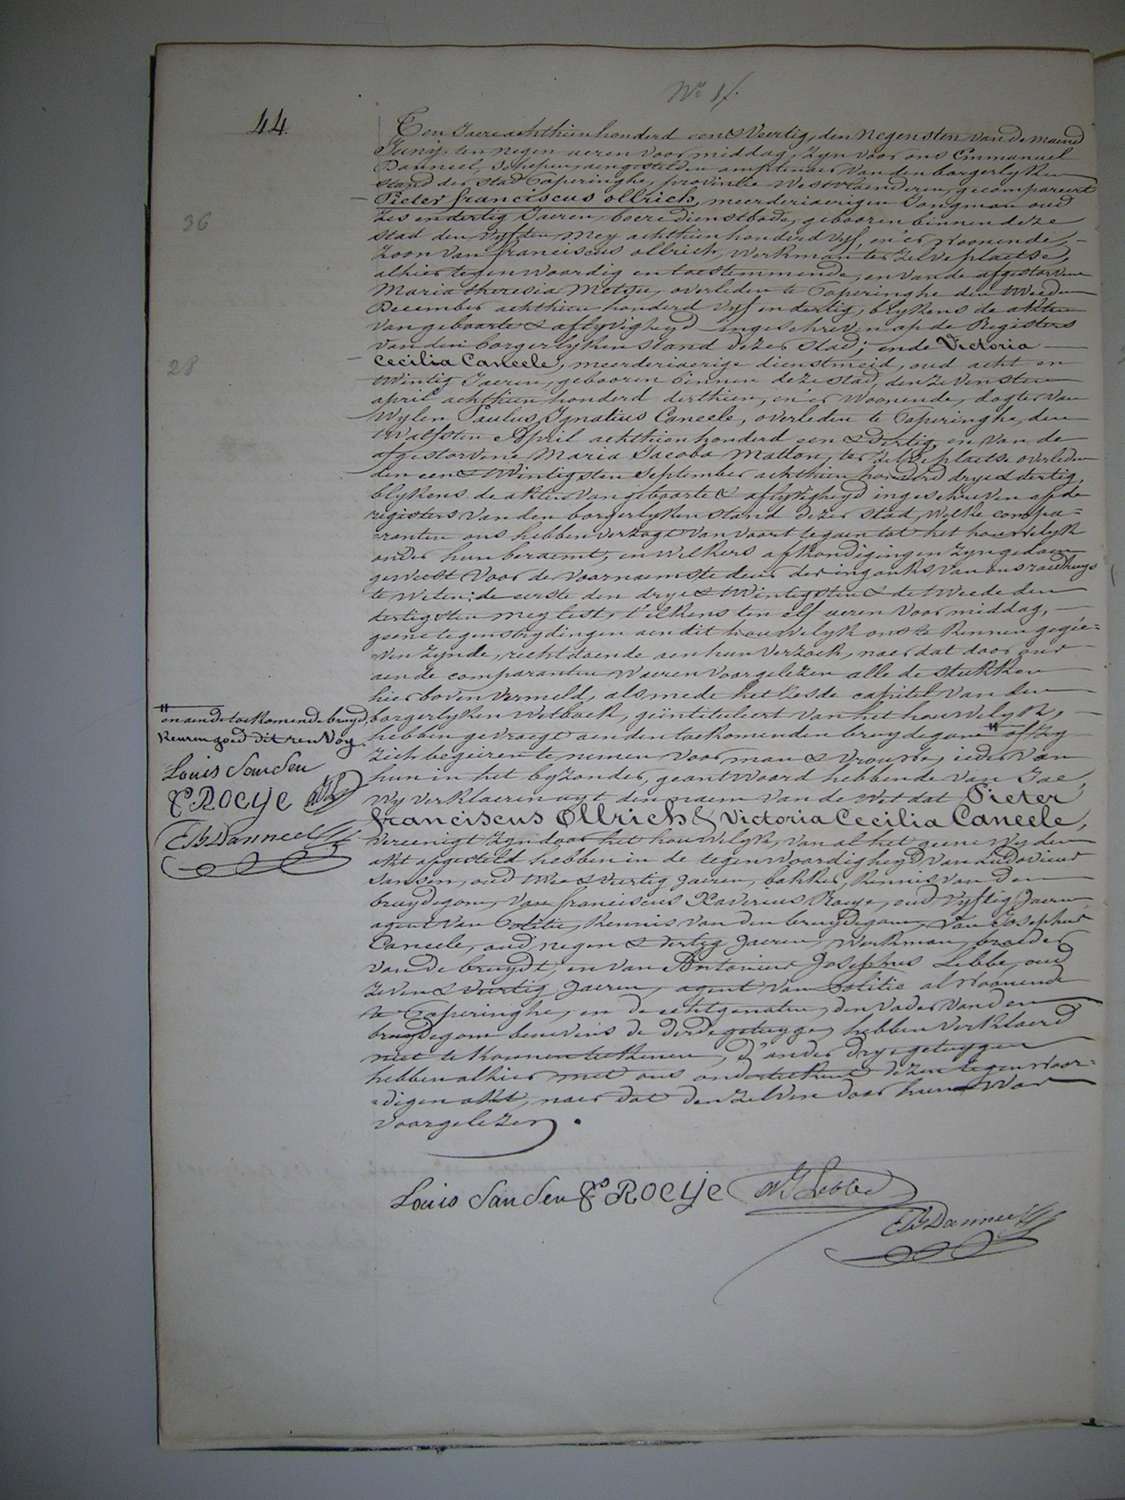 44
Ten Jaere achthien honderd een & Veertig, den Negensten van de maend
Juny, ten negen ueren voor middag, zyn voor ons Emmanuel
Danneel, Schepen, aengestelden amptenaer van den borgerlyken
stand der stad Poperinghe, provintie Westvlaenderen, gecompareert
Pieter franciscus Ollrich, meerderjaerigen Jongman oud
zes en dertig Jaeren, boere dienstbode, gebooren binnen deze
stad den vyfden Mey achthien honderd vyf, en er woonende,
zoon van franciscus Ollrich, werkman ter zelve plaetse,
alhier tegenwoordig en toestemmende, en van de afgestorvene
Maria theresia Metsu, overleden te Poperinghe den tweeden
December achthien honderd vyf en dertig, blykens de akten
van geboorte & aflyvigheyd ingeschreven op de Registers
van den borgerlyken stand dezer stad; ende Victoria
Cecilia Caneele, meerderjaerige dienstmeid, oud acht en
twintig Jaeren, gebooren binnen deze stad, den zevensten
april achthien honderd derthien, en er woonende, dogter van
wylen Paulus Ignatius Caneele, overleden te Poperinghe, den
twalfsten April achthien honderd een & dertig, en van de
afgestorvene Maria Jacoba Matton, ter zelve plaetse overleden
den een & twintigsten September achthien honderd drye & dertig,
blykens de akten van geboorte & aflyvigheyd ingeschreven op de
registers van den borgerlyken stand dezer stad, welke compa=
=ranten ons hebben verzogt van voort te gaen tot het houwelyk
onder hun beraemt, en welkers afkondigingen zyn gedaen
geweest voor de voornaemste deur der ingank van ons raedhuys
te weten: de eerste den drye & twintigsten & de tweede den
dertigsten mey lest, t'elkens ten elf ueren voor middag,
geene tegenstrydingen aen dit houwelyk ons te kennen gegee=
=ven zynde, rechtdoende aen hun verzoek, naer dat door ons
aen de comparanten waeren voorgelezen alle de stukken
hier boven vermeld, als mede het zesde capitel van den
borgerlyken Wetboek, geintituleert van het houwelyk,
hebben gevraegt aen den toekomenden bruydegom # of zy
zich begeiren te nemen voor man & vrouwe, ieder van
hun in het byzonder, geantwoord hebbende van Jae,
Wy verklaeren uyt den naem van de Wet dat Pieter
franciscus Ollrich & Victoria Cecilia Caneele,
vereenigt zyn door het houwelyk, van al het geene wy den
akt opgesteld hebben in de tegenwoordigheyd van Ludovicus
Sansen, oud twee & veertig Jaeren, bakker, kennis van den
bruydegom, van franciscus Xaverius Roeye, oud vyftig Jaeren,
agent van Politie, kennis van den bruydegom, van Josephus
Caneele, oud negen & dertig Jaeren, werkman, broeder
van de bruydt, en van Antonius Josephus Lebbe, oud
zeven & veertig Jaeren, agent van Politie al woonende
te Poperinghe, en de echtgenoten, den vader van den
bruydegom benevens de derde getuyge, hebben verklaerd
niet te konnen teekenen, d'ander drye getuygen
hebben alhier met ons onderteekent dezen tegenwoor=
=digen akt, naer dat den zelven door hun was
voorgelezen.
Louis Sansen fs Roeye AJ Lebbe
EB Danneel
36
28
# en aen de toekomende bruyd,
keuren goed dit renvoy.
Louis Sansen
fs Roeye AJL
EB Danneel